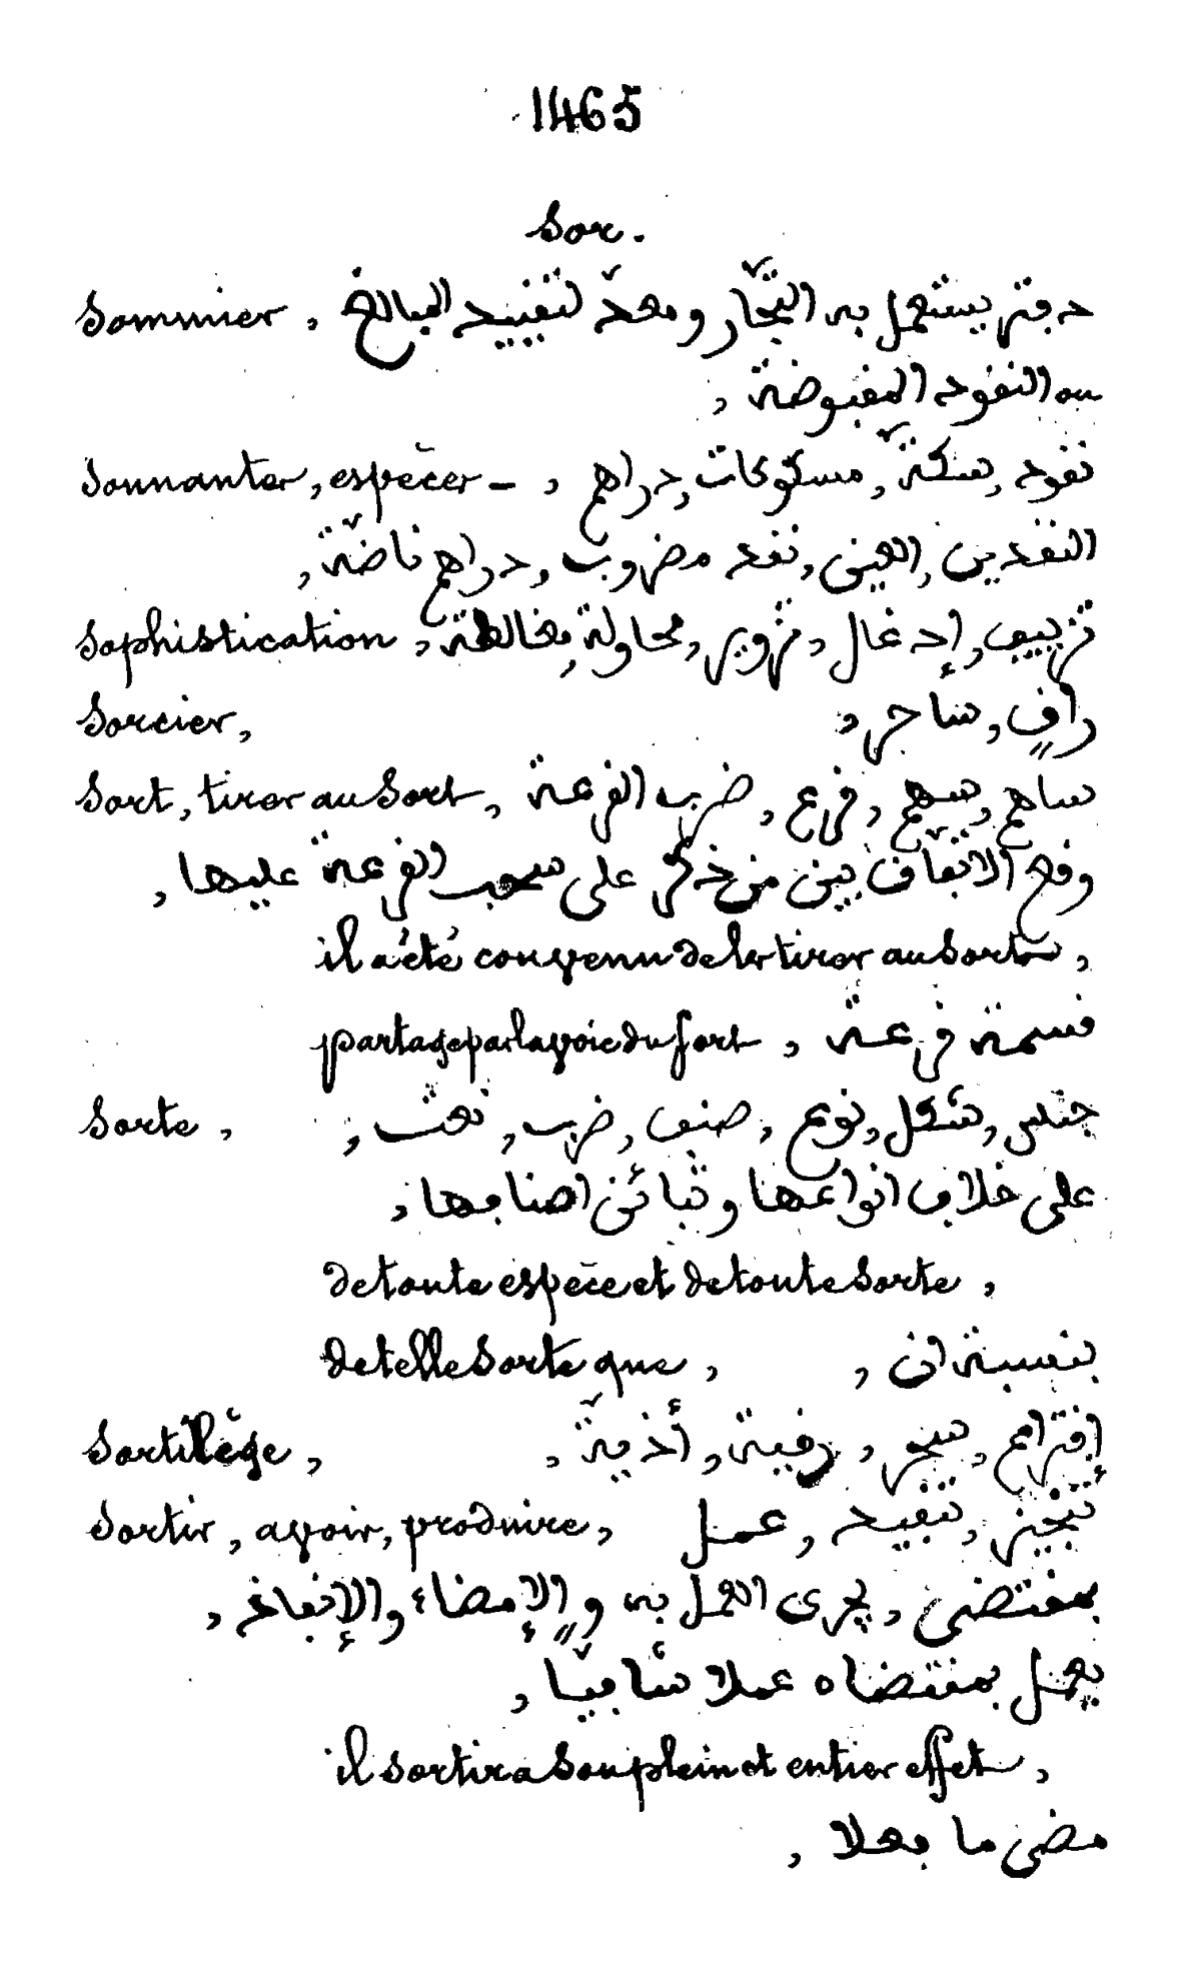 1465
Sor.
Sommier, دفتر يستعمل به التجّار ومعدّ لتقييد المبالغ
ou النقود المقبوضة,
Sonnantes, espèces -, نقود, سكّة, مسكوكات, دراهم,
النقدين, العين, نقد مضروب, دراهم ناضّة,
Sophistication, تزييف, إدغال, تزوير, محاولة, مغالطة,
Sorcier, راقٍ, ساحر,
Sort, tirer au Sort, ساهم, سهم, قرع, ضرب القرعة,
وقع الاتّفاق بين من ذكر على سحب القرعة عليها,
il a été convenu de les tirer au Sort,
partage par la voie du Sort, قسمة قرعة
Sorte, جنس, شكل, نوع, صنف, ضرب, نعت,
على خلاف انواعها وتبائن اصنافها,
de toute espèce et de toute Sorte,
de telle Sorte que, بنسبة ان,
Sortilège, إقتراح, سحر, رقية, أذيّة,
Sortir, avoir, produire, تنجيز, تنفيذ, عمل
بمقتضى, يجرى العمل به والإمضاء والإنفاذ,
يعمل بمقتضاه عملا شافيّا,
il sortira Son plein et entier effet,
مضى ما بعلا,